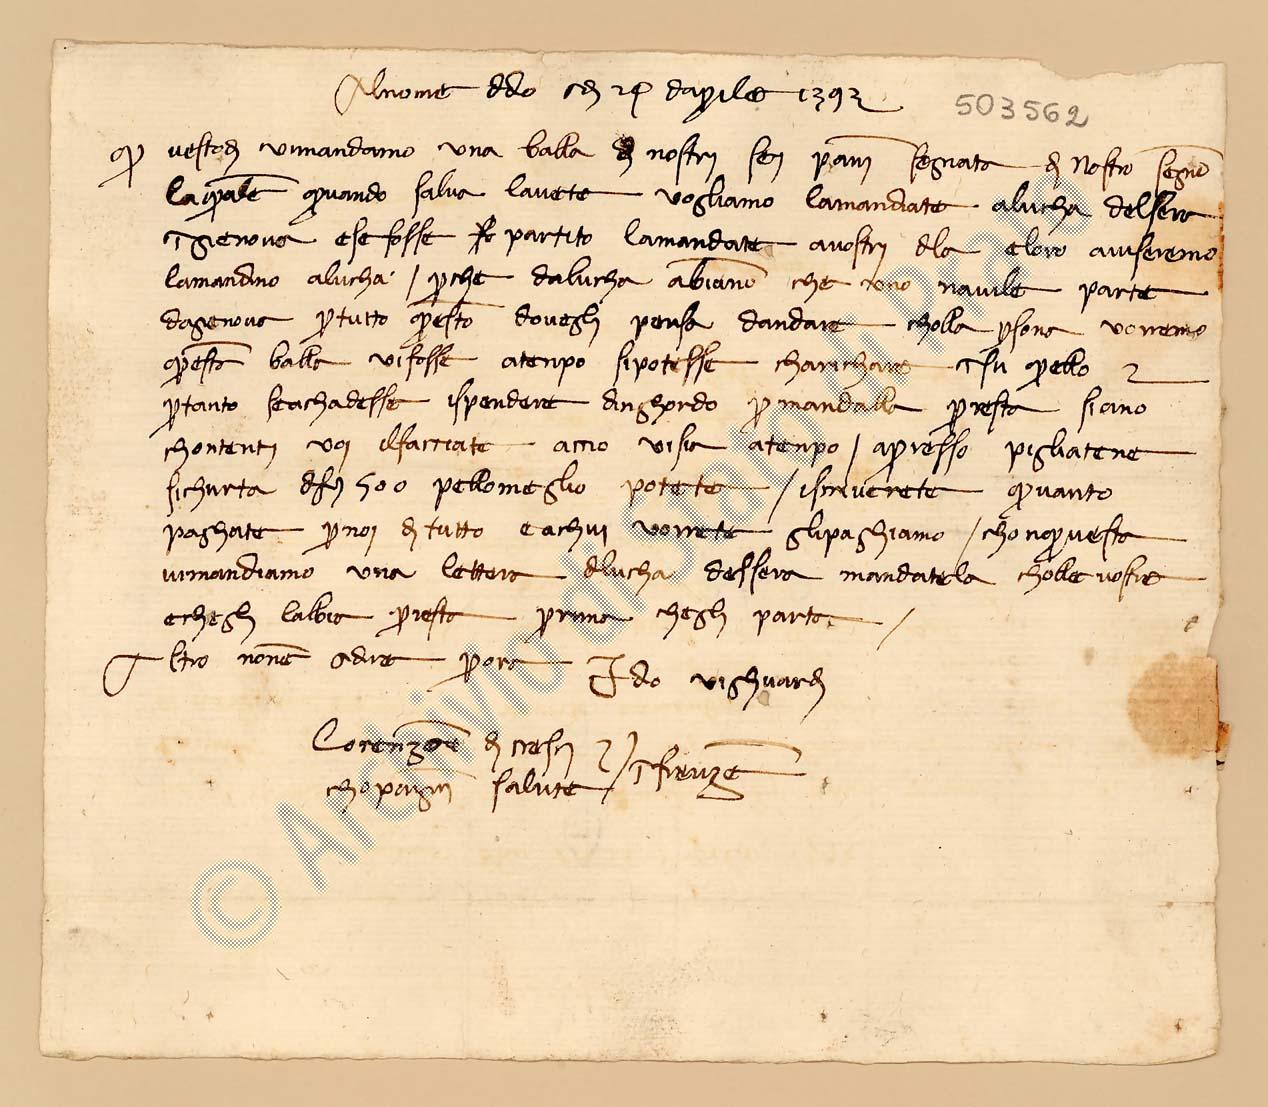 Al nome ddo a dì d'aprile 1392
503562
Questo dì vi mandamo una balla di nostri sei pani segnata di nostro segno
la quale quando salva l'avete vogliamo la mandiate a Lucha
Genova e se fosse partito la mandate a vostri di la e loro aviseremo
la mandino a Lucha / perché da Lucha abiano che uno navile parte
da Genova per tutto questo dovegli pensa d'andare cholla persona vorremo
questa balla vi fosse a tenpo si potesse charichare su quello
pertanto se achadesse ispendere per mandalla presta siano
chontenti voi il facciate accio vi sia a tenpo / apresso pigliatene
sichurta di f. 500 pello meglio potete / iscriverete quanto
paghate per noi di tutto e a chui vorrete gli paghiamo / chon questa
vi mandiamo una lettera di Lucha mandatela cholle vostre
e chegli l'abia presta prima chegli parta /
Altro non è a dire per ora Ido vi ghuardi
Lorenzo di Cresci
chopagni salute / Firenze
© Archivio di Stato di Prato